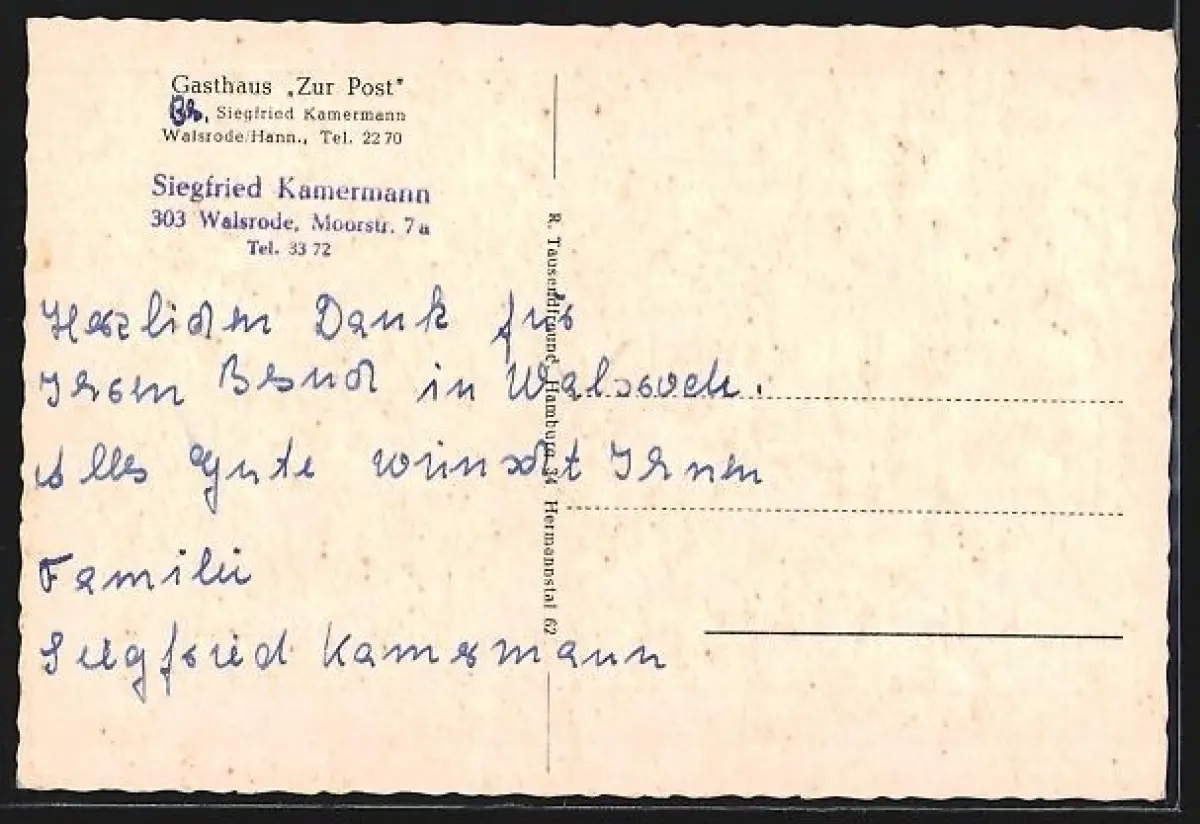 Gasthaus „Zur Post"
Siegfried Kamermann
Walsrode/Hann., Tel. 22 70
Siegfried Kamermann
303 Walsrode, Moorstr. 7a
Tel. 33 72
Herzlichen Dank für
Ihren Besuch in Walsrode.
Alles Gute wünscht Ihnen
Familie
Siegfried Kamermann
R. Tausendfreund, Hamburg 34 Hermannstal 62